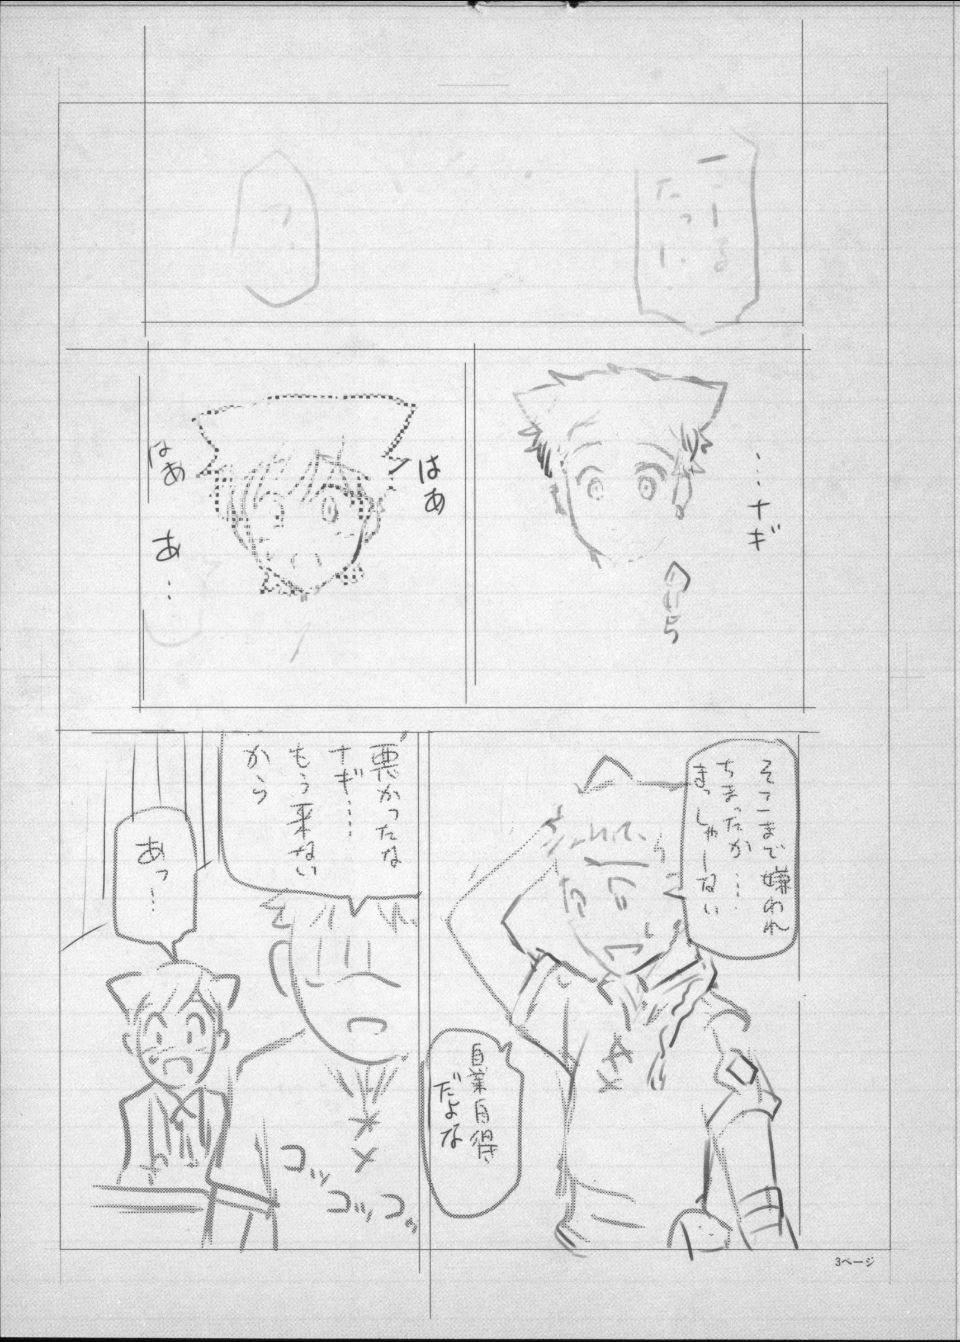 …ナギ
はあ
はあ
あ…
そこまで嫌われ
ちまったか…
きっしゃーない
自業自得
だよな
悪かったな
ナギ……
もう来ない
から
あっ…
コッ
コッ
コッ
3ページ